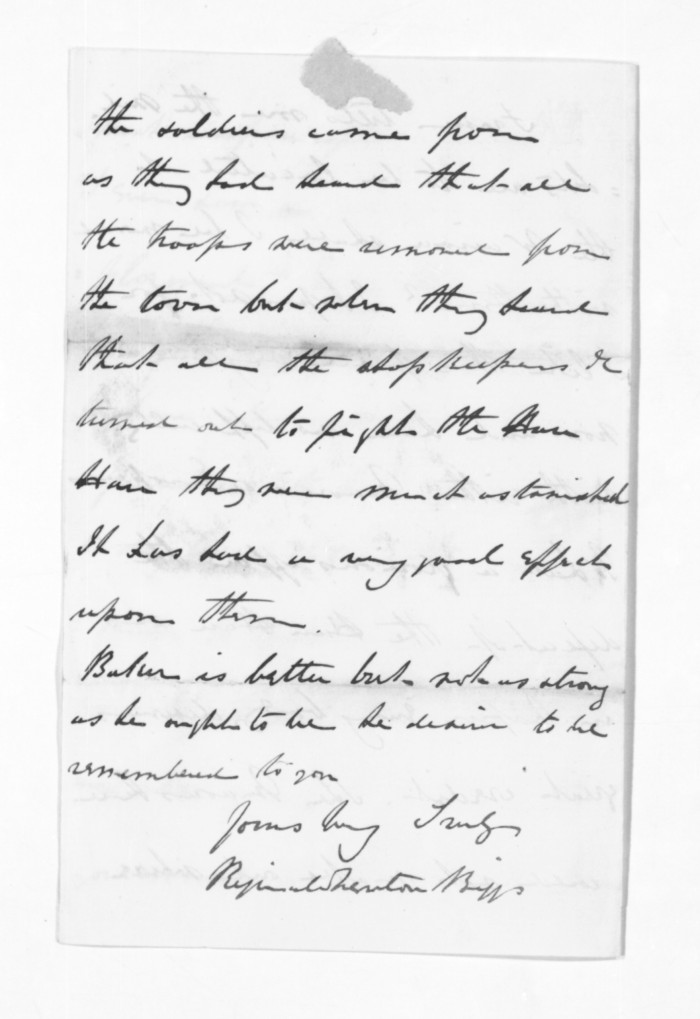 the soldiers came from
as they had heard that all
the troops were removed from
the town but when they heard
that all the shopkeepers &c
turned out to fight the Hau
Hau they were much astonished
It has had a very good effect
upon them.
Baker is better but not as strong
as he ought to be he desires to be
remembered to you
Yours very Truly
Reginald Newton Biggs